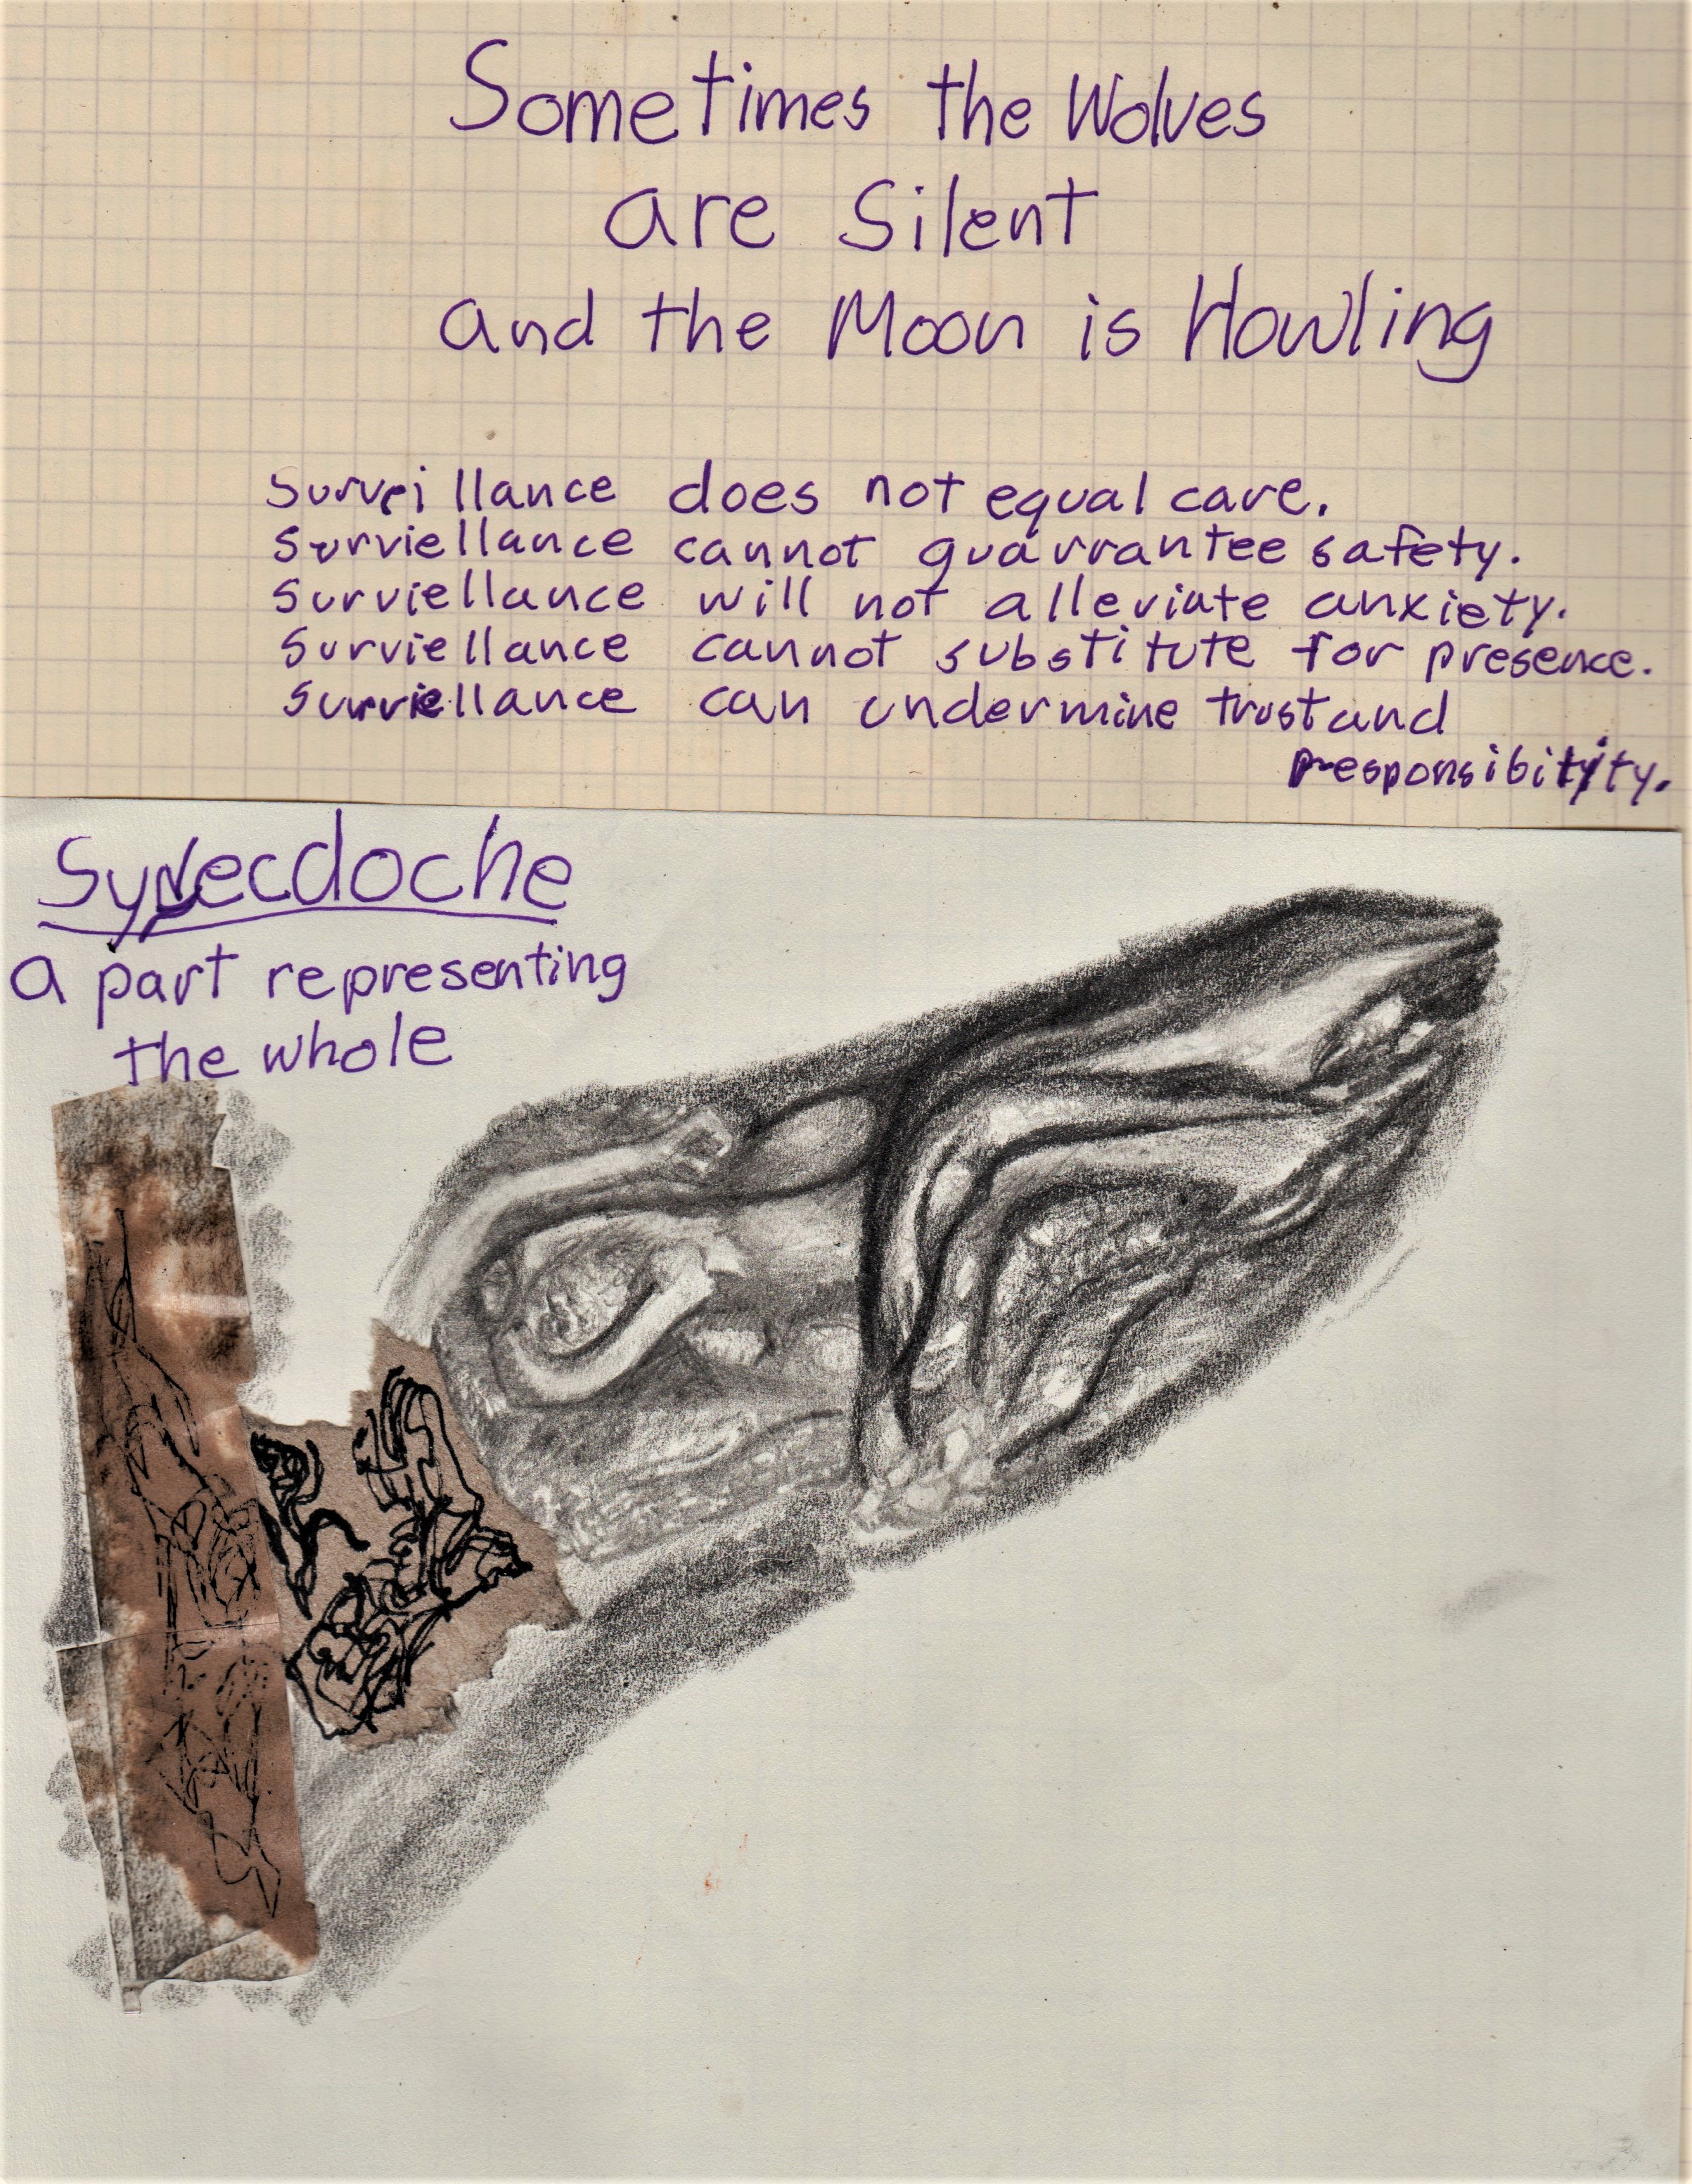 Sometimes the Wolves
are Silent
and the Moon is Howling
Surveillance does not equal care.
Surviellance cannot guarrantee safety.
Surviellance will not alleviate anxiety.
Surviellance cannot substitute for presence.
Surviellance can undermine trust and
responsibility.
Synecdoche
a part representing
the whole